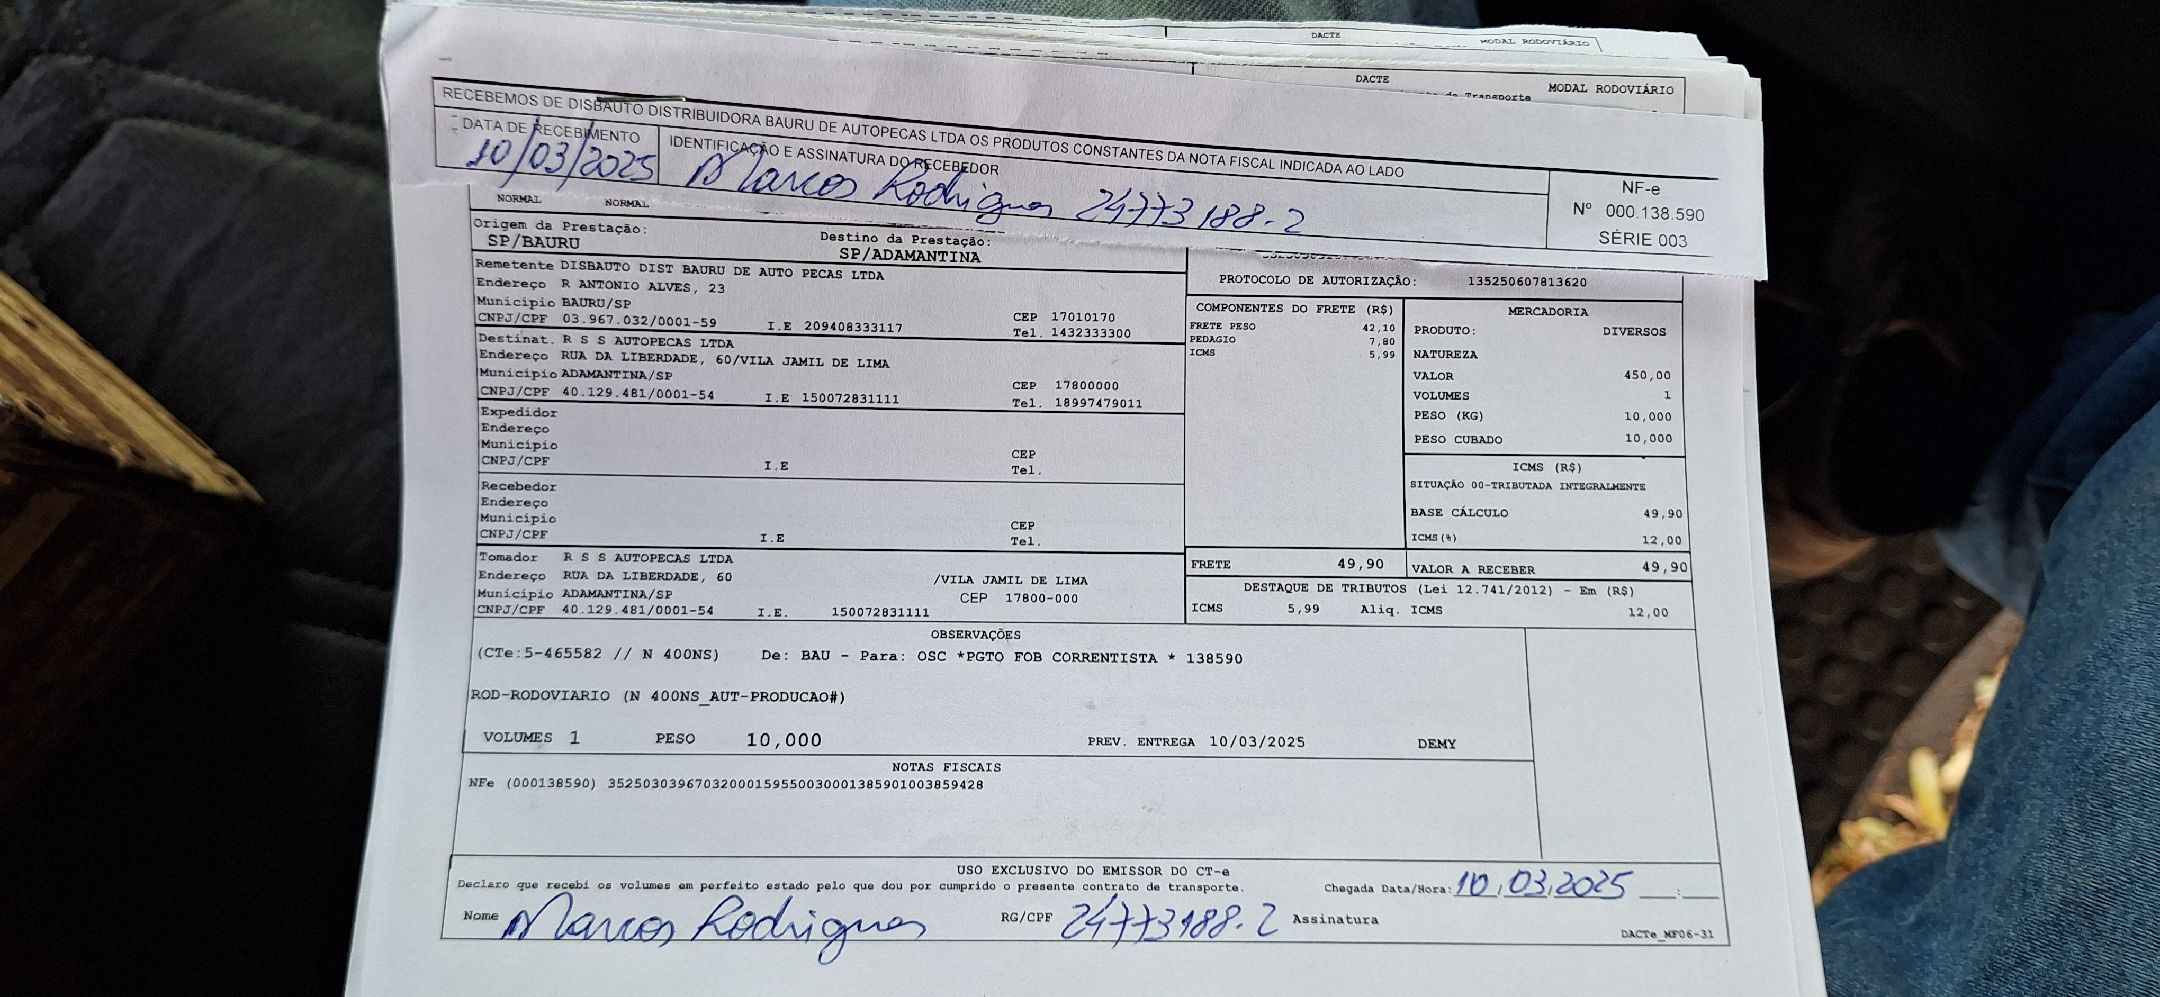 DACTE
MODAL RODOVIÁRIO
DACTE
MODAL RODOVIÁRIO
de Transporte
RECEBEMOS DE DISBAUTO DISTRIBUIDORA BAURU DE AUTOPECAS LTDA OS PRODUTOS CONSTANTES DA NOTA FISCAL INDICADA AO LADO
DATA DE RECEBIMENTO
IDENTIFICAÇÃO E ASSINATURA DO RECEBEDOR
10/03/2025
Marcos Rodrigues 24773188-2
NF-e
Nº 000.138.590
SÉRIE 003
NORMAL NORMAL
Origem da Prestação:
SP/BAURU
Destino da Prestação:
SP/ADAMANTINA
Remetente DISBAUTO DIST BAURU DE AUTO PECAS LTDA
Endereço R ANTONIO ALVES, 23
Município BAURU/SP
CEP 17010170
CNPJ/CPF 03.967.032/0001-59 I.E 209408333117 Tel. 1432333300
Destinat. R S S AUTOPECAS LTDA
Endereço RUA DA LIBERDADE, 60/VILA JAMIL DE LIMA
Município ADAMANTINA/SP
CEP 17800000
CNPJ/CPF 40.129.481/0001-54 I.E 150072831111 Tel. 18997479011
Expedidor
Endereço
Município
CEP
CNPJ/CPF I.E Tel.
Recebedor
Endereço
Município
CEP
CNPJ/CPF I.E Tel.
Tomador R S S AUTOPECAS LTDA
Endereço RUA DA LIBERDADE, 60 /VILA JAMIL DE LIMA
Município ADAMANTINA/SP CEP 17800-000
CNPJ/CPF 40.129.481/0001-54 I.E. 150072831111
PROTOCOLO DE AUTORIZAÇÃO: 135250607813620
COMPONENTES DO FRETE (R$)
FRETE PESO 42,10
PEDAGIO 7,80
ICMS 5,99
MERCADORIA
PRODUTO: DIVERSOS
NATUREZA
VALOR 450,00
VOLUMES 1
PESO (KG) 10,000
PESO CUBADO 10,000
ICMS (R$)
SITUAÇÃO 00-TRIBUTADA INTEGRALMENTE
BASE CÁLCULO 49,90
ICMS(%) 12,00
FRETE 49,90
VALOR A RECEBER 49,90
DESTAQUE DE TRIBUTOS (Lei 12.741/2012) - Em (R$)
ICMS 5,99 Aliq. ICMS 12,00
OBSERVAÇÕES
(CTe:5-465582 // N 400NS) De: BAU - Para: OSC *PGTO FOB CORRENTISTA * 138590
ROD-RODOVIARIO (N 400NS_AUT-PRODUCAO#)
VOLUMES 1 PESO 10,000 PREV. ENTREGA 10/03/2025 DEMY
NOTAS FISCAIS
NFe (000138590) 35250303967032000159550030001385901003859428
USO EXCLUSIVO DO EMISSOR DO CT-e
Declaro que recebi os volumes em perfeito estado pelo que dou por cumprido o presente contrato de transporte.
Chegada Data/Hora: 10/03/2025 __:__
Nome Marcos Rodrigues RG/CPF 24773188-2 Assinatura
DACTe_MF06-31